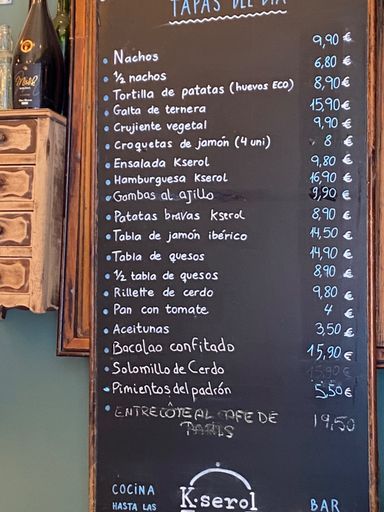 TAPAS DEL DIA
• Nachos 9,90 €
• ½ nachos 6,80 €
• Tortilla de patatas (huevos ECO) 8,90 €
• Galta de ternera 15,90 €
• Crujiente vegetal 9,90 €
• Croquetas de jamón (4 uni) 8 €
• Ensalada Kserol 9,80 €
• Hamburguesa Kserol 16,90 €
• Gambas al ajillo 9,90 €
• Patatas bravas Kserol 8,90 €
• Tabla de jamón ibérico 14,50 €
• Tabla de quesos 14,90 €
• ½ tabla de quesos 8,90 €
• Rillette de cerdo 9,80 €
• Pan con tomate 4 €
• Aceitunas 3,50 €
• Bacalao confitado 15,90 €
• Solomillo de Cerdo 15,90 €
• Pimientos del padrón 5,50 €
• ENTRECÔTE AL CAFE DE 19,50
PARIS
COCINA K·serol BAR
HASTA LAS